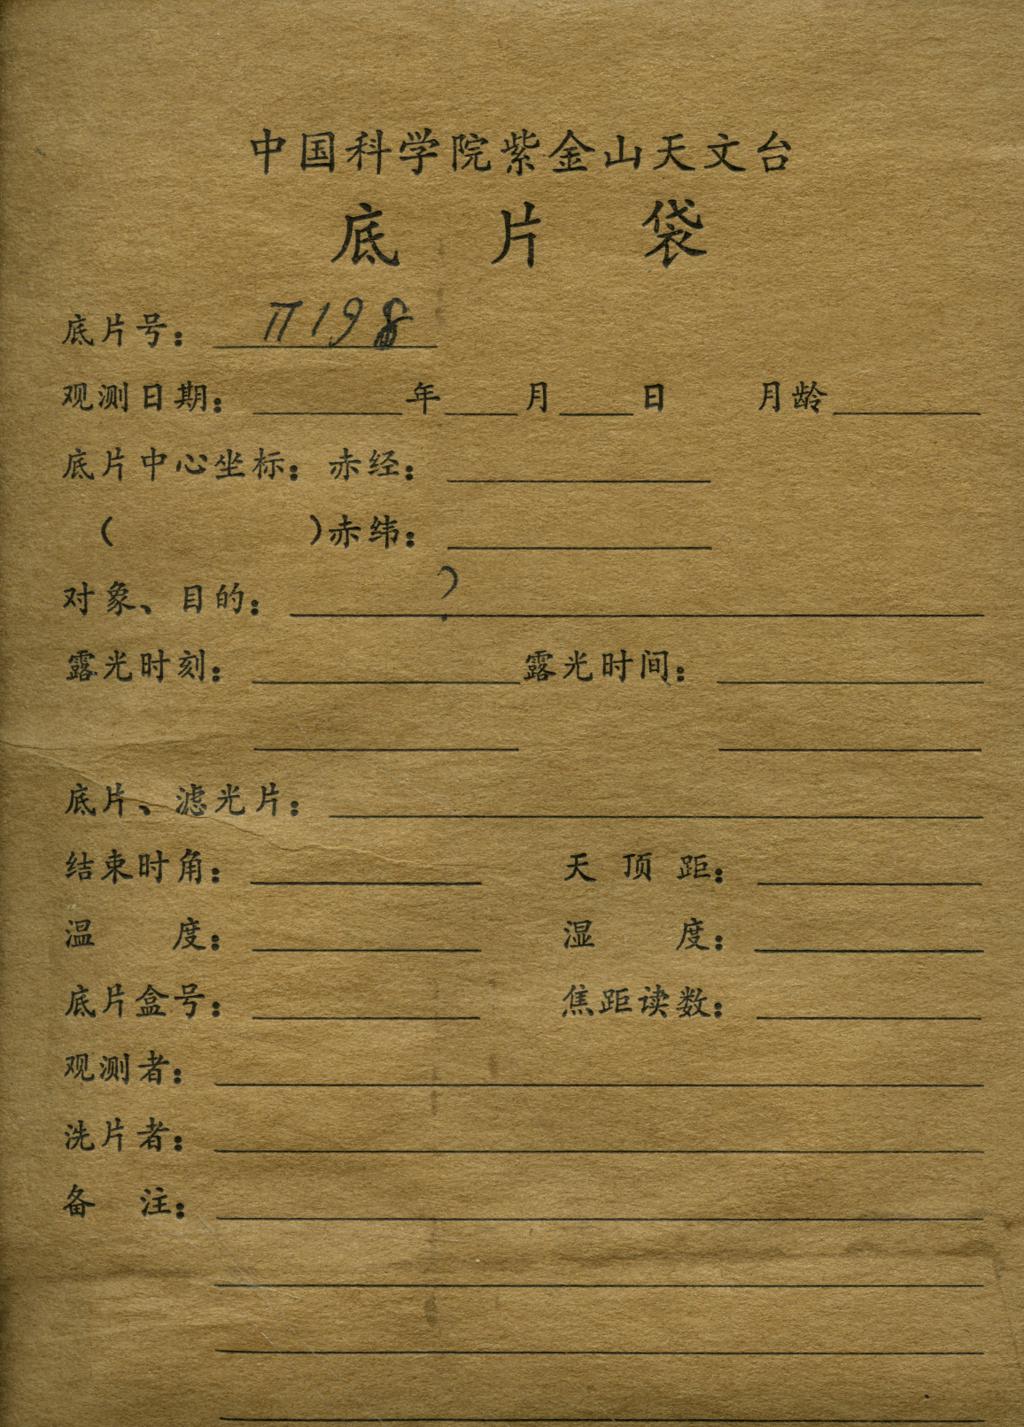 中国科学院紫金山天文台
底片袋
底片号： π198
观测日期： 年 月 日 月龄
底片中心坐标：赤经：
（ ）赤纬：
对象、目的： ?
露光时刻： 露光时间：
底片、滤光片：
结束时角： 天顶距：
温度： 湿度：
底片盒号： 焦距读数：
观测者：
洗片者：
备注：